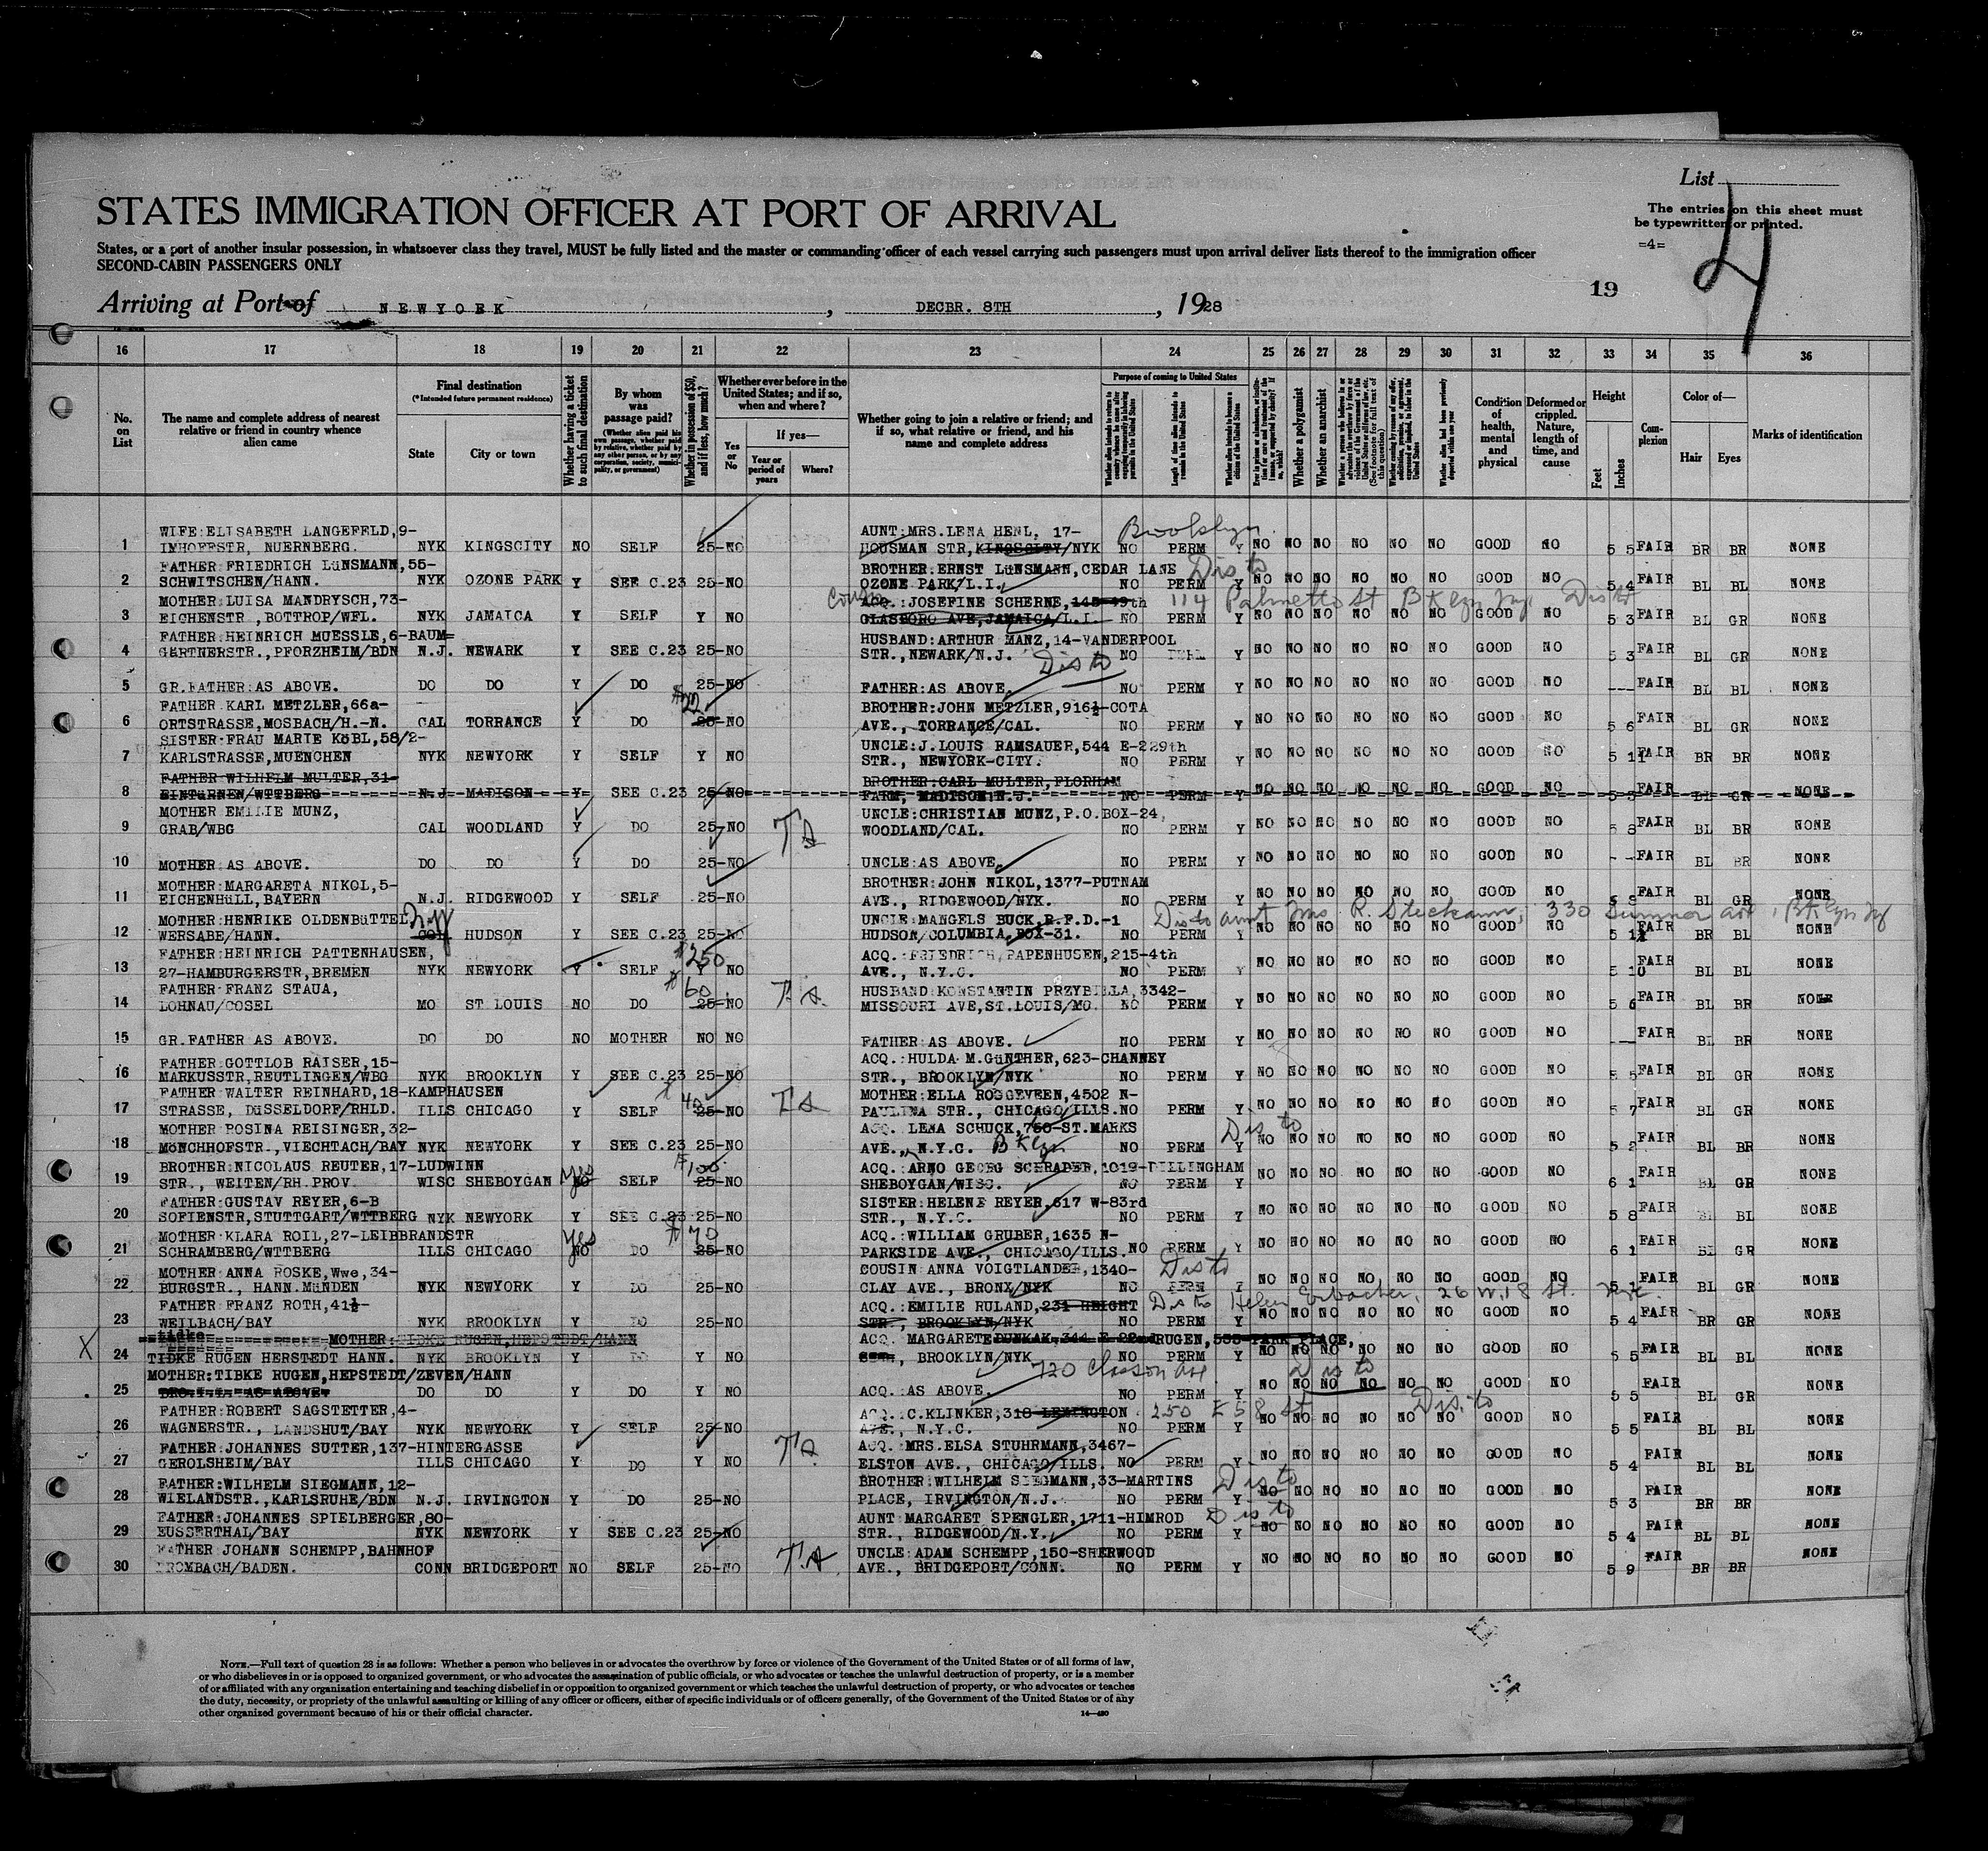 List
The entries on this sheet must
be typewritten or printed.
=4=
4
STATES IMMIGRATION OFFICER AT PORT OF ARRIVAL
States, or a port of another insular possession, in whatsoever class they travel, MUST be fully listed and the master or commanding officer of each vessel carrying such passengers must upon arrival deliver lists thereof to the immigration officer
SECOND-CABIN PASSENGERS ONLY
19
Arriving at Port of NEWYORK, DECBR. 8TH, 1928
16 17 18 19 20 21 22 23 24 25 26 27 28 29 30 31 32 33 34 35 36
No. on List
The name and complete address of nearest relative or friend in country whence alien came
Final destination
(*Intended future permanent residence)
State City or town
Whether having a ticket to such final destination
By whom was passage paid?
(Whether alien paid his own passage, whether paid by relative, whether paid by any other person, or by any corporation, society, municipality, or government)
Whether in possession of $50, and if less, how much?
Whether ever before in the United States; and if so, when and where?
Yes or No
If yes—
Year or period of years
Where?
Whether going to join a relative or friend; and if so, what relative or friend, and his name and complete address
Purpose of coming to United States
Length of time alien intends to remain in the United States
Whether alien intends to become a citizen of the United States
Whether a polygamist
Whether an anarchist
Condition of health, mental and physical
Deformed or crippled. Nature, length of time, and cause
Height
Feet Inches
Complexion
Color of—
Hair Eyes
Marks of identification
WIFE:ELISABETH LANGEFELD,9- AUNT:MRS.LENA HENL, 17- Brooklyn
1 IMHOFFSTR, NUERNBERG. NYK KINGSCITY NO SELF 25-NO HOUSMAN STR,KINGSCITY/NYK NO PERM Y NO NO NO NO NO NO GOOD NO 5 5 FAIR BR BR NONE
FATHER FRIEDRICH LüNSMANN,55- BROTHER:ERNST LüNSMANN,CEDAR LANE Dis to
2 SCHWITSCHEN/HANN. NYK OZONE PARK Y SEE C.23 25-NO OZONE PARK/L.I. NO PERM Y NO NO NO NO NO NO GOOD NO 5 4 FAIR BL BL NONE
MOTHER:LUISA MANDRYSCH,73- Cousin ACQ.:JOSEFINE SCHERNE,145-49th 114 Palmetto St Bklyn Ny. Dis to
3 EICHENSTR,BOTTROP/WFL. NYK JAMAICA Y SELF Y NO GLASBORO AVE,JAMAICA/L.I. NO PERM Y NO NO NO NO NO NO GOOD NO 5 3 FAIR BL GR NONE
FATHER:HEINRICH MUESSLE,6-BAUM= HUSBAND:ARTHUR MANZ,14-VANDERPOOL
4 GÄRTNERSTR.,PFORZHEIM/BDN N.J. NEWARK Y SEE C.23 25-NO STR.,NEWARK/N.J. Dis to NO PERM Y NO NO NO NO NO NO GOOD NO 5 3 FAIR BL GR NONE
5 GR.FATHER:AS ABOVE. DO DO Y DO 25-NO FATHER:AS ABOVE. NO PERM Y NO NO NO NO NO NO GOOD NO --- FAIR BL BL NONE
FATHER KARL METZLER,66a- BROTHER:JOHN METZLER,916½-COTA
6 ORTSTRASSE,MOSBACH/H.-N. CAL TORRANCE Y DO 25-NO AVE., TORRANCE/CAL. NO PERM Y NO NO NO NO NO NO GOOD NO 5 6 FAIR BL GR NONE
SISTER-FRAU MARIE KöBL,58/2- UNCLE:J.LOUIS RAMSAUER,544 E-229th
7 KARLSTRASSE,MUENCHEN NYK NEWYORK Y SELF Y NO STR., NEWYORK-CITY. NO PERM Y NO NO NO NO NO NO GOOD NO 5 11 FAIR BR BR NONE
FATHER WILHELM MULTER,31- BROTHER:CARL MULTER,FLORHAM
8 EINTüRNEN/WTTBERG N.J. MADISON Y SEE C.23 25-NO FARM, MADISON N.J. NO PERM Y NO NO NO NO NO NO GOOD NO 5 5 FAIR BL GR NONE
MOTHER EMILIE MUNZ, UNCLE:CHRISTIAN MUNZ,P.O.BOX-24,
9 GRAB/WBG CAL WOODLAND Y DO 25-NO WOODLAND/CAL. NO PERM Y NO NO NO NO NO NO GOOD NO 5 8 FAIR BL BR NONE
10 MOTHER:AS ABOVE. DO DO Y DO 25-NO UNCLE:AS ABOVE. NO PERM Y NO NO NO NO NO NO GOOD NO -- FAIR BL BR NONE
MOTHER:MARGARETA NIKOL,5- BROTHER:JOHN NIKOL,1377-PUTNAM
11 EICHENHüLL,BAYERN N.J. RIDGEWOOD Y SELF 25-NO AVE., RIDGEWOOD/NYK. NO PERM Y NO NO NO NO NO NO GOOD NO 5 8 FAIR BL GR NONE
MOTHER:HENRIKE OLDENBüTTEL, UNCLE:MANGELS BUCK,R.F.D.-1 Dis to aunt Mrs R. Steckann, 330 Sumner ave, Bklyn Ny
12 WERSABE/HANN. COL HUDSON Y SEE C.23 25-NO HUDSON/COLUMBIA,BOX-31. NO PERM Y NO NO NO NO NO NO GOOD NO 5 1 FAIR BR BL NONE
FATHER:HEINRICH PATTENHAUSEN, $250 ACQ.:FRIEDRICH PAPENHUSEN,215-4th
13 27-HAMBURGERSTR,BREMEN NYK NEWYORK Y SELF Y NO AVE., N.Y.C. NO PERM Y NO NO NO NO NO NO GOOD NO 5 10 FAIR BL BL NONE
FATHER:FRANZ STAUA, $60 HUSBAND:KONSTANTIN PRZYBILLA,3342-
14 LOHNAU/COSEL MO ST.LOUIS NO DO 25-NO MISSOURI AVE,ST.LOUIS/MO. NO PERM Y NO NO NO NO NO NO GOOD NO 5 6 FAIR BL BR NONE
15 GR.FATHER AS ABOVE. DO DO NO MOTHER NO NO FATHER:AS ABOVE. NO PERM Y NO NO NO NO NO NO GOOD NO --- FAIR BL BR NONE
FATHER:GOTTLOB RAISER,15- ACQ.:HULDA M.GüNTHER,623-CHANNEY
16 MARKUSSTR,REUTLINGEN/WBG NYK BROOKLYN Y SEE C.23 25-NO STR., BROOKLYN/NYK NO PERM Y NO NO NO NO NO NO GOOD NO 5 5 FAIR BL GR NONE
FATHER WALTER REINHARD,18-KAMPHAUSEN MOTHER:ELLA ROGGEVEEN,4502 N-
17 STRASSE, DüSSELDORF/RHLD. ILLS CHICAGO Y SELF 40 25-NO PAULINA STR., CHICAGO/ILLS. NO PERM Y NO NO NO NO NO NO GOOD NO 5 7 FAIR BL GR NONE
MOTHER ROSINA REISINGER,32- ACQ. LENA SCHUCK,760-ST.MARKS Dis to
18 MöNCHHOFSTR.,VIECHTACH/BAY NYK NEWYORK Y SEE C.23 25-NO AVE., N.Y.C. Bklyn NO PERM NO NO NO NO NO NO GOOD NO 5 2 FAIR BL BR NONE
BROTHER:NICOLAUS REUTER,17-LUDWINN yes $100 ACQ.:ARNO GEORG SCHRADER,1019-DILLINGHAM
19 STR., WEITEN/RH.PROV. WISC SHEBOYGAN NO SELF 25-NO SHEBOYGAN/WISC. NO PERM Y NO NO NO NO NO NO GOOD NO 6 1 FAIR BL GR NONE
FATHER:GUSTAV REYER,6-B SISTER:HELENE REYER,617 W-83rd
20 SOFIENSTR,STUTTGART/WTTBERG NYK NEWYORK Y SEE C.23 25-NO STR., N.Y.C. NO PERM Y NO NO NO NO NO NO GOOD NO 5 8 FAIR BL BL NONE
MOTHER KLARA ROIL,27-LEIBBRANDSTR yes $70 ACQ.:WILLIAM GRUBER,1635 N-
21 SCHRAMBERG/WTTBERG ILLS CHICAGO NO DO 25-NO PARKSIDE AVE., CHICAGO/ILLS. NO PERM Y NO NO NO NO NO NO GOOD NO 6 1 FAIR BL GR NONE
MOTHER ANNA ROSKE,Wwe,34- COUSIN ANNA VOIGTLANDER,1340- Dis to
22 BURGSTR., HANN.MüNDEN NYK NEWYORK Y DO 25-NO CLAY AVE., BRONX/NYK NO PERM Y NO NO NO NO NO NO GOOD NO 5 1 FAIR BL GR NONE
FATHER FRANZ ROTH,41½- ACQ.:EMILIE RULAND,231-HEIGHT Dis to Helen 26 W. 18 St.
23 WEILBACH/BAY NYK BROOKLYN Y DO 25-NO STR, BROOKLYN/NYK NO PERM Y NO NO NO NO NO NO GOOD NO 5 4 FAIR BR GR NONE
tidke MOTHER:TIDKE RUGEN,HEPSTEDT/HANN ACQ. MARGARETE DUNKAK,344 E-22nd RUGEN,535-PARK PLACE,
X 24 TIDKE RUGEN HERSTEDT HANN. NYK BROOKLYN Y DO Y NO , BROOKLYN/NYK NO PERM Y NO NO NO NO NO NO GOOD NO 5 5 FAIR BL BL NONE
MOTHER:TIBKE RUGEN,HEPSTEDT/ZEVEN/HANN 720 Classon Ave Dis to
25 AS ABOVE. DO DO Y DO Y NO ACQ.:AS ABOVE. NO PERM Y NO NO NO NO NO NO GOOD NO 5 5 FAIR BL GR NONE
FATHER:ROBERT SAGSTETTER,4- ACQ.:C.KLINKER,318-LEXINGTON 250 E 58 St Dis. to
26 WAGNERSTR., LANDSHUT/BAY NYK NEWYORK Y SELF 25-NO AVE., N.Y.C. NO PERM Y NO NO NO NO NO NO GOOD NO 5 5 FAIR BL BL NONE
FATHER:JOHANNES SUTTER,137-HINTERGASSE ACQ. MRS.ELSA STUHRMANN,3467-
27 GEROLSHEIM/BAY ILLS CHICAGO Y DO Y NO ELSTON AVE., CHICAGO/ILLS. NO PERM Y NO NO NO NO NO NO GOOD NO 5 4 FAIR BL BL NONE
FATHER:WILHELM SIEGMANN,12- BROTHER:WILHELM SIEGMANN,33-MARTINS Dis to
28 WIELANDSTR.,KARLSRUHE/BDN N.J. IRVINGTON Y DO 25-NO PLACE, IRVINGTON/N.J. NO PERM Y NO NO NO NO NO NO GOOD NO 5 3 FAIR BR BR NONE
FATHER:JOHANNES SPIELBERGER,80- AUNT MARGARET SPENGLER,1711-HIMROD Dis to
29 EUSSERTHAL/BAY NYK NEWYORK Y SEE C.23 25-NO STR., RIDGEWOOD/N.Y. NO PERM Y NO NO NO NO NO NO GOOD NO 5 4 FAIR BL BL NONE
FATHER JOHANN SCHEMPP,BAHNHOF UNCLE:ADAM SCHEMPP,150-SHERWOOD
30 BROMBACH/BADEN. CONN BRIDGEPORT NO SELF 25-NO AVE., BRIDGEPORT/CONN. NO PERM Y NO NO NO NO NO NO GOOD NO 5 9 FAIR BR BR NONE
NOTE.—Full text of question 28 is as follows: Whether a person who believes in or advocates the overthrow by force or violence of the Government of the United States or of all forms of law,
or who disbelieves in or is opposed to organized government, or who advocates the assassination of public officials, or who advocates or teaches the unlawful destruction of property, or is a member
of or affiliated with any organization entertaining and teaching disbelief in or opposition to organized government or which teaches the unlawful destruction of property, or who advocates or teaches
the duty, necessity, or propriety of the unlawful assaulting or killing of any officer or officers, either of specific individuals or of officers generally, of the Government of the United States or of any
other organized government because of his or their official character.
14—420